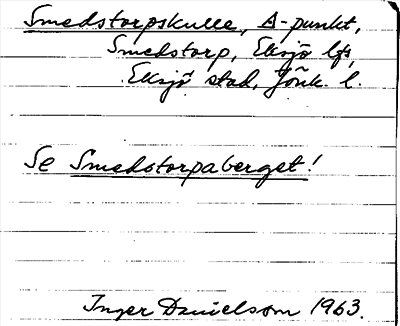 Smedstorpskulle, Δ-punkt,
Smedstorp, Eksjö lfs,
Eksjö stad, Jönk. l.
Se Smedstorpaberget!
Inger Danielsson 1963.